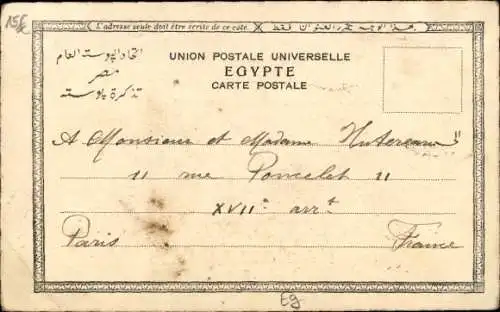 15£
L'adresse seule doit être écrite de ce côté.
هذا الوجه محرر العنوان فقط
اتحاد البوسته العام
مصر
تذكرة بوسته
UNION POSTALE UNIVERSELLE
EGYPTE
CARTE POSTALE
A Monsieur et Madame
11 rue Poncelet 11
XVIIe arrt
Paris France
Eg